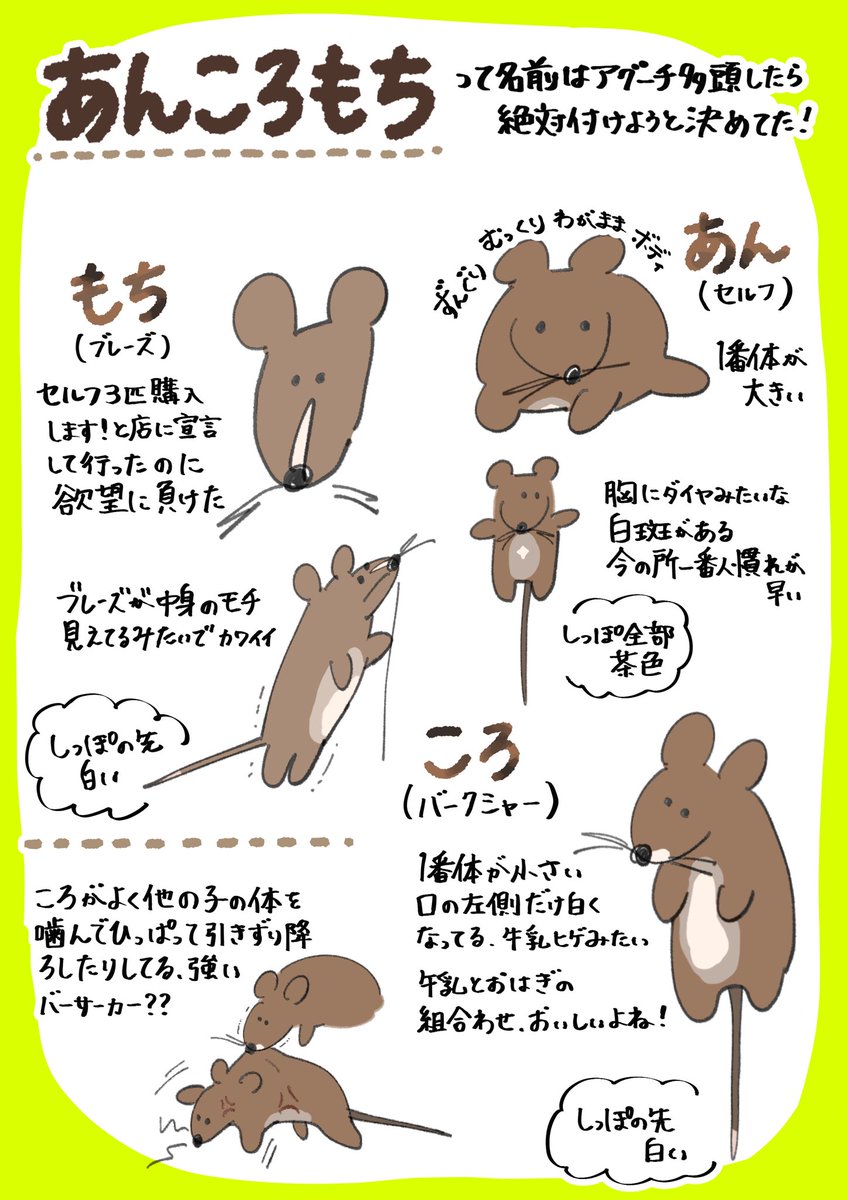 あんころもち
って名前はアグーチ多頭したら
絶対付けようと決めてた!
もち
(ブレーズ)
セルフ3匹購入
します!と店に宣言
して行ったのに
欲望に負けた
ブレーズが中身のモチ
見えてるみたいでカワイイ
しっぽの先
白い
ずんぐり むっくり わがまま ボディ
あん
(セルフ)
1番体が
大きい
胸にダイヤみたいな
白斑がある
今の所一番人慣れが
早い
しっぽ全部
茶色
ころ
(バークシャー)
1番体が小さい
口の左側だけ白く
なってる、牛乳ヒゲみたい
牛乳とおはぎの
組合わせ、おいしいよね!
しっぽの先
白い
ころがよく他の子の体を
噛んでひっぱって引きずり降
ろしたりしてる、強い
バーサーカー??